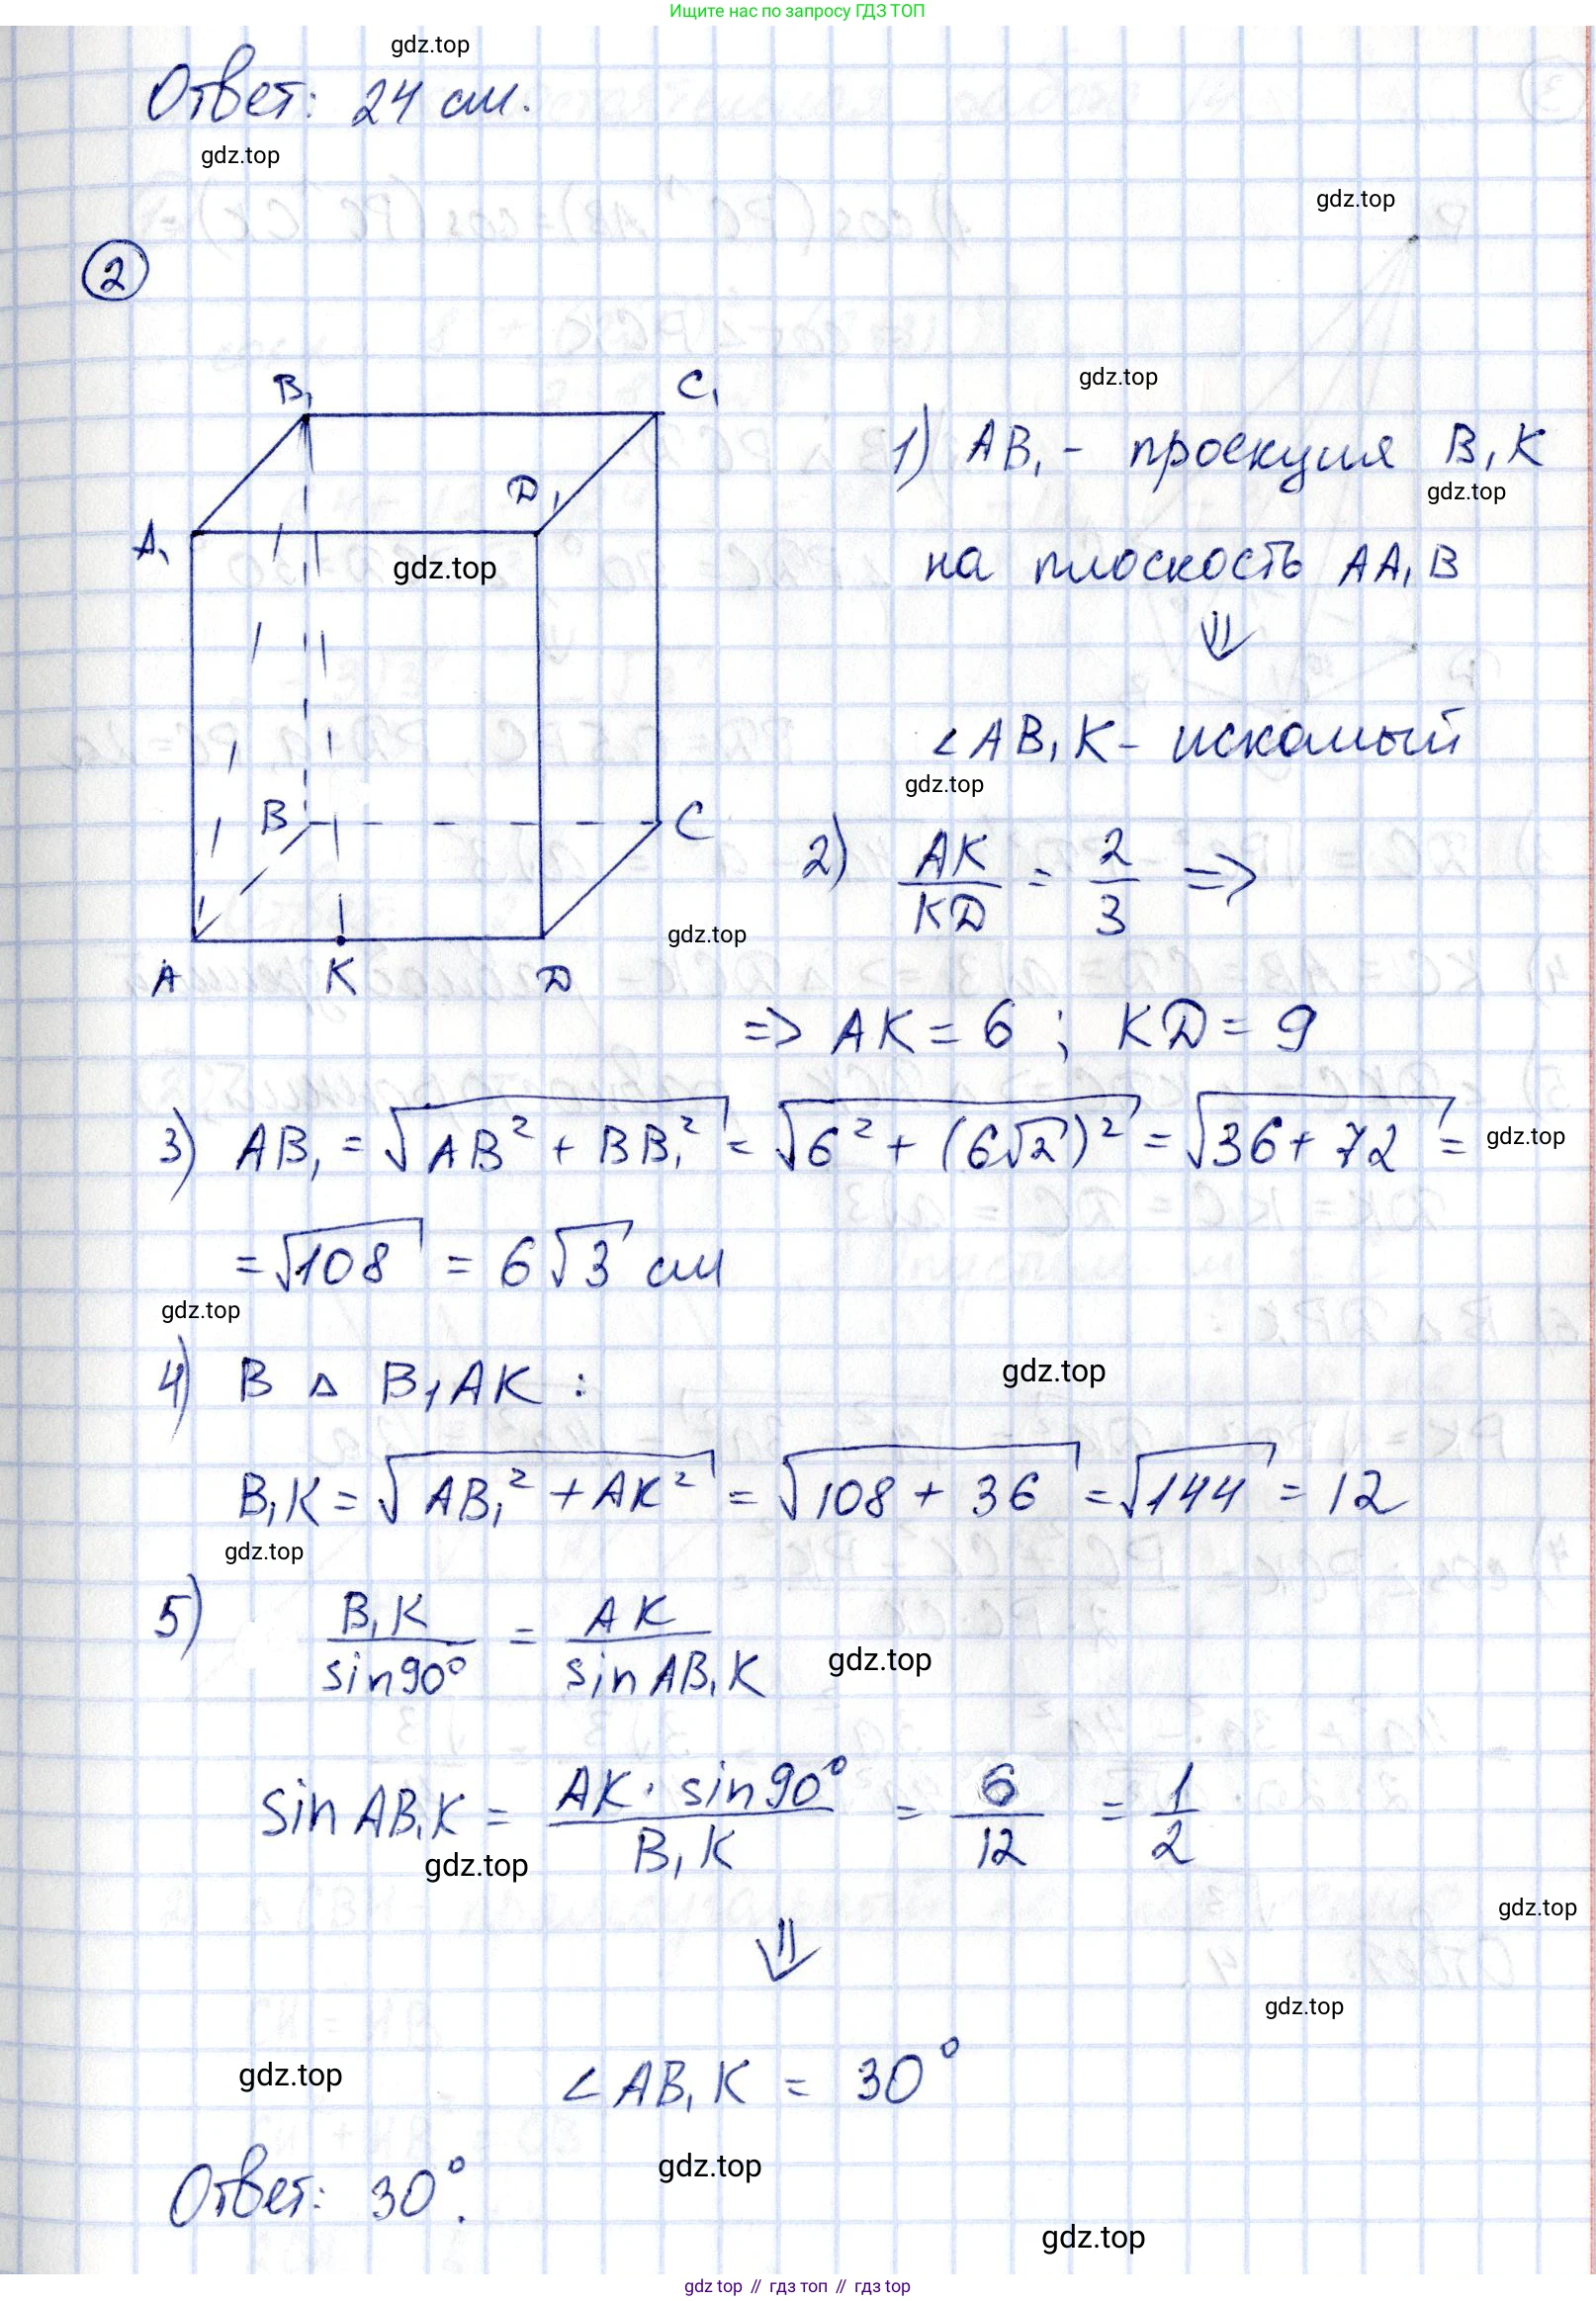 Ищите нас по запросу ГДЗ ТОП
gdz.top
Ответ: 24 см.
gdz.top
gdz.top
2
B₁ C₁
gdz.top
1) AB₁ - проекция B₁K
gdz.top
D₁
A₁
gdz.top
на плоскость AA₁B
⇓
∠AB₁K - искомый
gdz.top
B C
2) AK/KD = 2/3 =>
gdz.top
A K D
=> AK = 6 ; KD = 9
3) AB₁ = √(AB² + BB₁²) = √(6² + (6√2)²) = √(36 + 72) =
gdz.top
= √108 = 6√3 см
gdz.top
4) В △ B₁AK :
gdz.top
B₁K = √(AB₁² + AK²) = √(108 + 36) = √144 = 12
gdz.top
5) B₁K/sin90° = AK/sinAB₁K
gdz.top
sinAB₁K = AK · sin90°/B₁K = 6/12 = 1/2
gdz.top
gdz.top
⇓
gdz.top
∠AB₁K = 30°
gdz.top
gdz.top
Ответ: 30°.
gdz.top
gdz top // гдз топ // gdz top